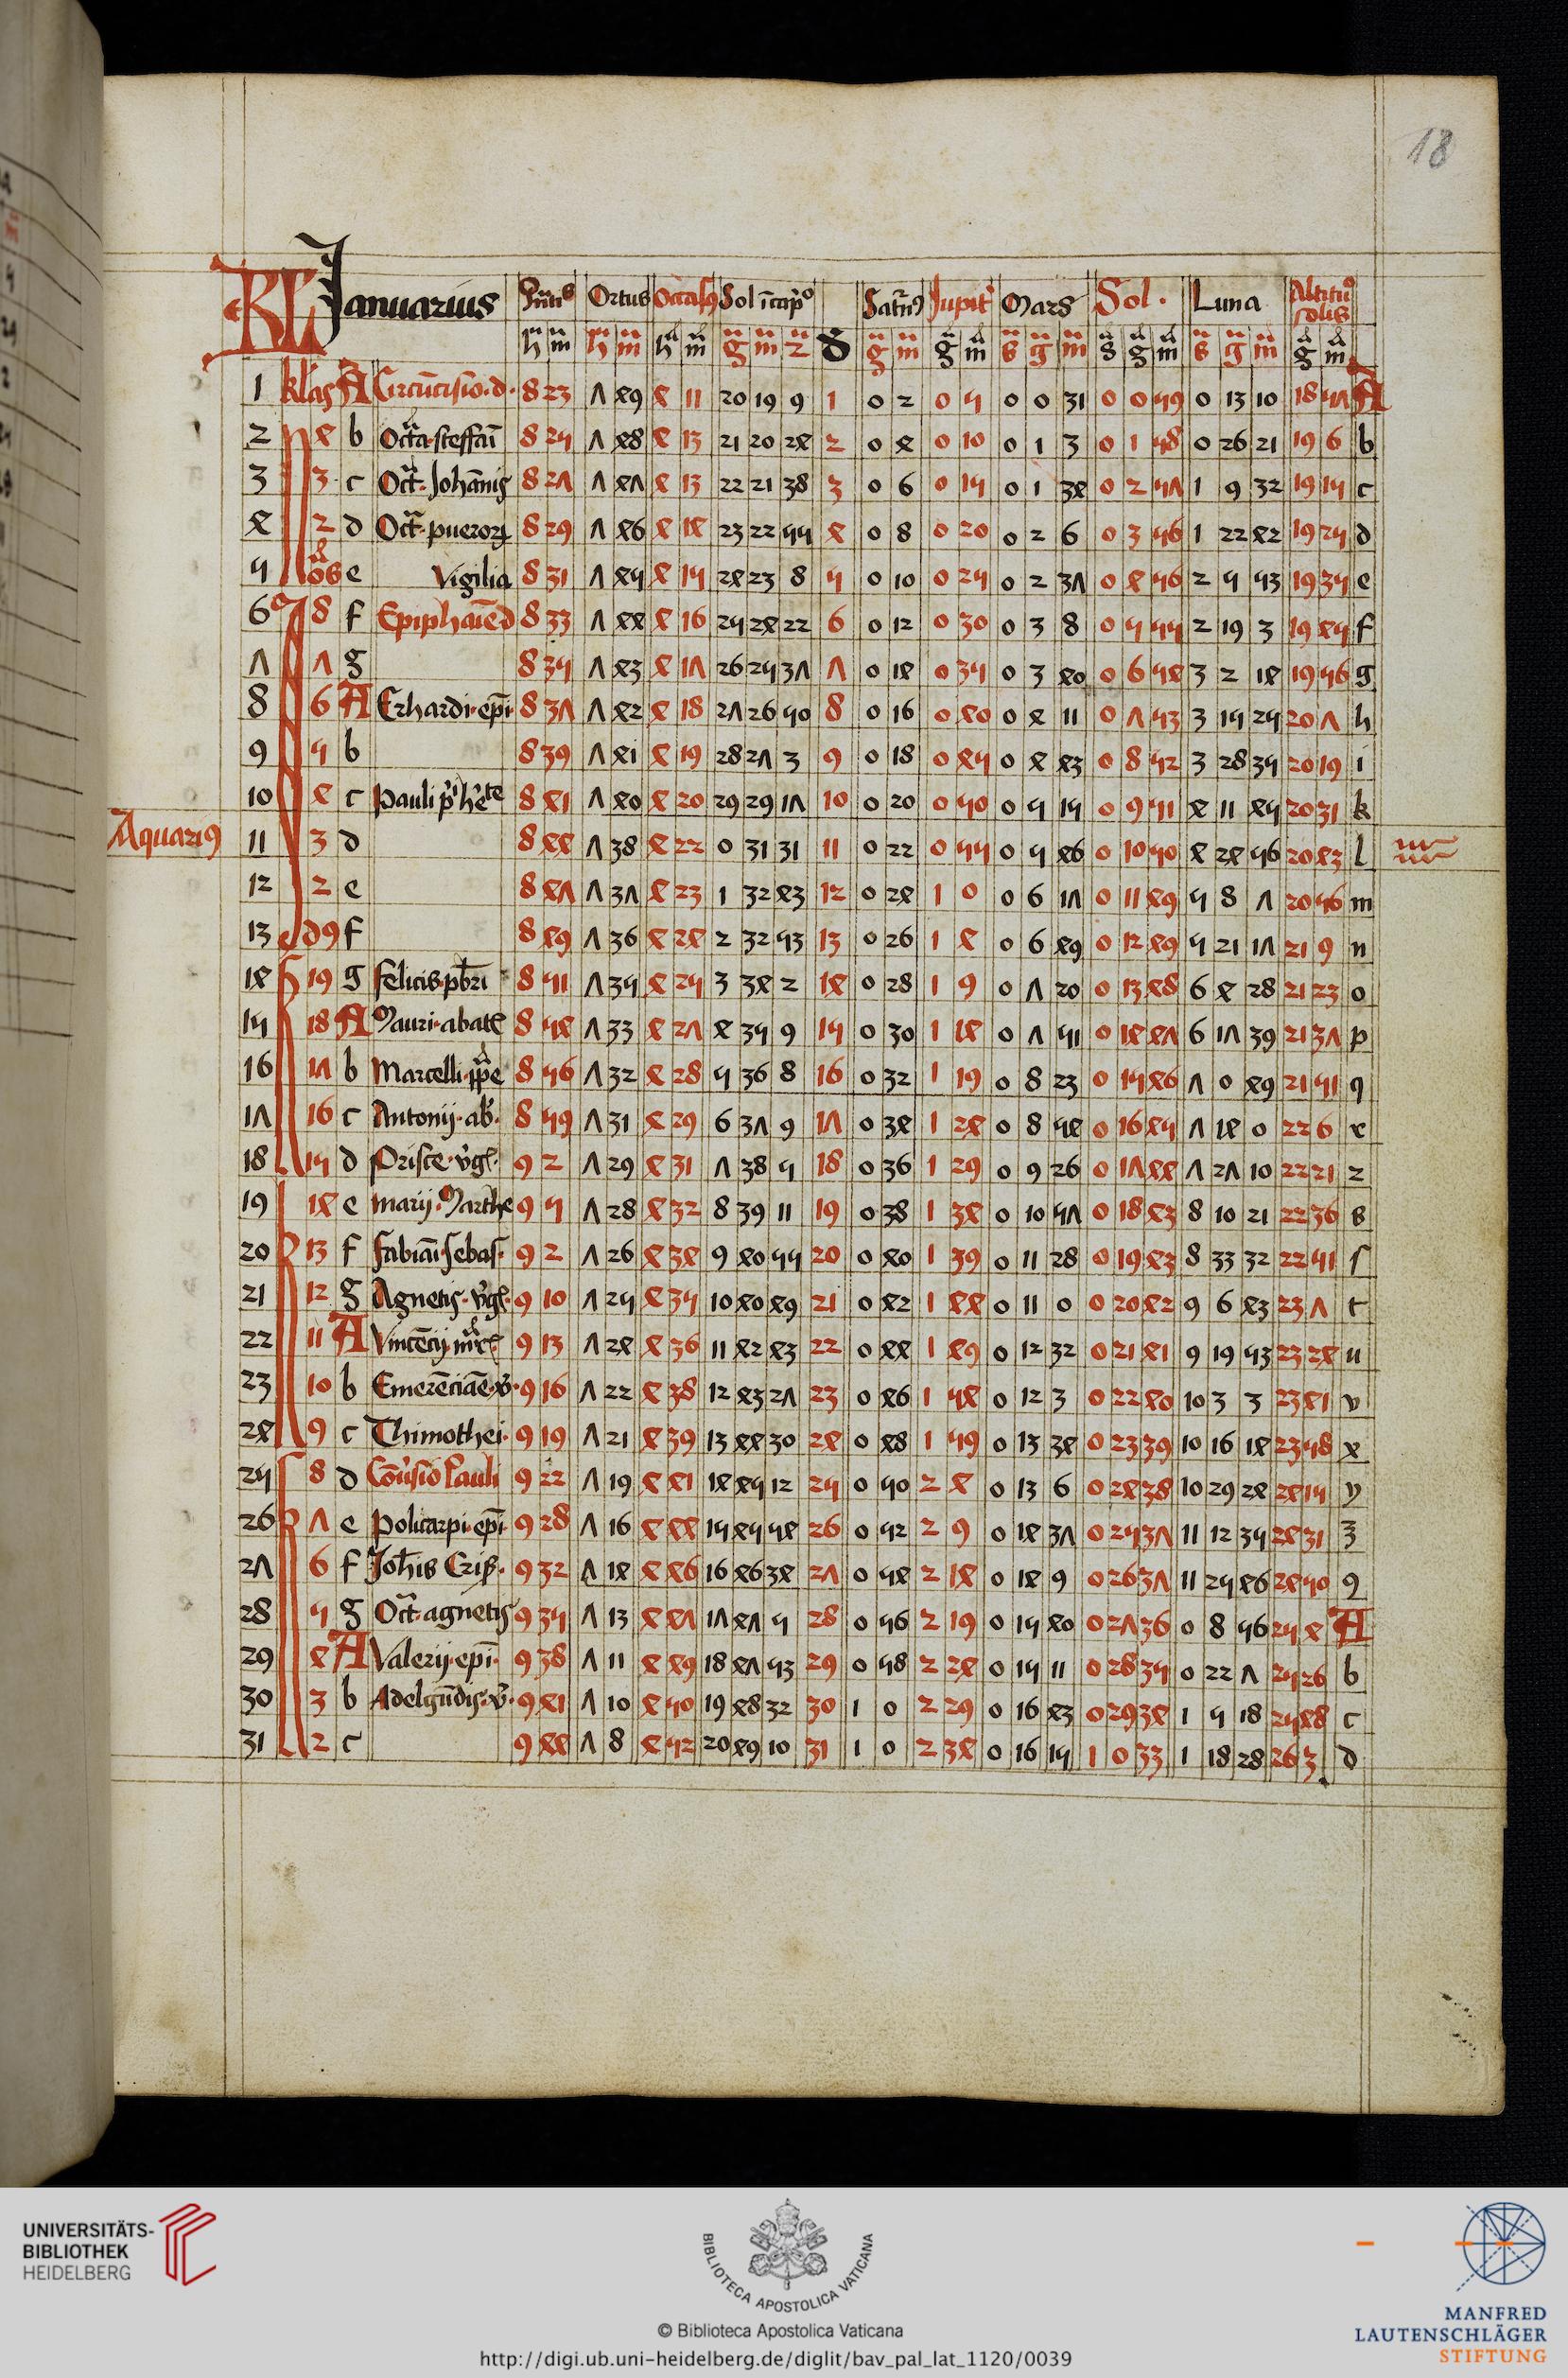 18
KL Januarius Ortus Occasus Sol Saturn9 Jupit Mars Sol · Luna Altitu solis
h m h m h m g m 2 d g m g m s g m s g m s g m g m
1 klas A Circūcisio · d · 8 23 7 49 4 11 20 19 9 1 0 2 0 5 0 0 31 0 0 59 0 13 10 18 57 A
2 4 b Octa · steffaī 8 25 7 48 4 13 21 20 24 2 0 4 0 10 0 1 3 0 1 58 0 26 21 19 6 b
3 3 c Oct · Johānis 8 27 7 47 4 13 22 21 38 3 0 6 0 15 0 1 34 0 2 57 1 9 32 19 15 c
4 2 d Oct · pueroꝝ 8 29 7 46 4 14 23 22 55 4 0 8 0 20 0 2 6 0 3 56 1 22 42 19 25 d
5 e Vigilia 8 31 7 45 4 15 24 23 8 5 0 10 0 25 0 2 37 0 4 56 2 5 53 19 35 e
6 8 f Epiphaīe d 8 33 7 44 4 16 25 24 22 6 0 12 0 30 0 3 8 0 5 55 2 19 3 19 45 f
7 7 g 8 35 7 43 4 17 26 25 37 7 0 14 0 35 0 3 40 0 6 54 3 2 14 19 56 g
8 6 A Erhardi · ep̄i · 8 37 7 42 4 18 27 26 50 8 0 16 0 40 0 4 11 0 7 53 3 15 25 20 7 h
9 5 b 8 39 7 41 4 19 28 27 3 9 0 18 0 45 0 4 43 0 8 52 3 28 35 20 19 i
10 4 c Pauli p̄i h̄e te 8 41 7 40 4 20 29 29 17 10 0 20 0 50 0 5 15 0 9 51 4 11 45 20 31 k
Aquari9 11 3 d 8 44 7 38 4 22 0 31 31 11 0 22 0 55 0 5 46 0 10 50 4 24 56 20 43 l
12 2 e 8 47 7 37 4 23 1 32 43 12 0 24 1 0 0 6 17 0 11 49 5 8 7 20 56 m
13 d9 f 8 49 7 36 4 24 2 32 53 13 0 26 1 4 0 6 49 0 12 49 5 21 17 21 9 n
14 19 g Felicis · pb̄ri 8 51 7 35 4 25 3 34 2 14 0 28 1 9 0 7 20 0 13 48 6 4 28 21 23 o
15 18 A Mauri · abate 8 54 7 33 4 27 4 35 9 15 0 30 1 14 0 7 51 0 14 47 6 17 39 21 37 p
16 17 b Marcelli · ppe 8 56 7 32 4 28 5 36 8 16 0 32 1 19 0 8 23 0 15 46 7 0 49 21 51 q
17 16 c Antonij · ab · 8 59 7 31 4 29 6 37 9 17 0 34 1 24 0 8 54 0 16 45 7 14 0 22 6 r
18 15 d Prisce · v̄gł · 9 2 7 29 4 31 7 38 5 18 0 36 1 29 0 9 26 0 17 44 7 27 10 22 21 z
19 14 e Marij · Marthe 9 5 7 28 4 32 8 39 11 19 0 38 1 34 0 10 57 0 18 43 8 10 21 22 36 s
20 13 f Fabiaī · sebas · 9 2 7 26 4 34 9 40 55 20 0 40 1 39 0 11 28 0 19 43 8 33 32 22 51 ſ
21 12 g Agnetis · v̄gł · 9 10 7 25 4 35 10 40 49 21 0 42 1 44 0 11 0 0 20 42 9 6 43 23 7 t
22 11 A Vincēcij m̄r 9 13 7 24 4 36 11 42 43 22 0 44 1 49 0 12 32 0 21 41 9 19 53 23 24 u
23 10 b Emerēciāe · v · 9 16 7 22 4 38 12 43 27 23 0 46 1 54 0 12 3 0 22 40 10 3 3 23 41 v
24 9 c Thimothei · 9 19 7 21 4 39 13 44 30 24 0 48 1 59 0 13 34 0 23 39 10 16 14 23 58 x
25 8 d Cōv̄sio Pauli 9 22 7 19 4 41 14 45 12 25 0 50 2 4 0 13 6 0 24 38 10 29 24 24 15 y
26 7 e Policarpi · ep̄i · 9 28 7 16 4 44 15 45 54 26 0 52 2 9 0 14 37 0 25 37 11 12 35 24 31 3
27 6 f Joh̄is Criß · 9 32 7 14 4 46 16 46 34 27 0 54 2 14 0 14 9 0 26 37 11 25 46 24 50 9
28 5 g Oct · agnetis 9 35 7 13 4 47 17 47 5 28 0 56 2 19 0 15 40 0 27 36 0 8 56 25 4 A
29 4 A Valerij · ep̄i · 9 38 7 11 4 49 18 47 53 29 0 58 2 24 0 15 11 0 28 35 0 22 7 25 26 b
30 3 b Adelgūdis · v̄ · 9 41 7 10 4 50 19 48 32 30 1 0 2 29 0 16 43 0 29 34 1 5 18 25 48 c
31 2 c 9 44 7 8 4 52 20 49 10 31 1 0 2 34 0 16 15 1 0 33 1 18 28 26 3 d
UNIVERSITÄTS-
BIBLIOTHEK
HEIDELBERG
BIBLIOTECA APOSTOLICA VATICANA
© Biblioteca Apostolica Vaticana
http://digi.ub.uni-heidelberg.de/diglit/bav_pal_lat_1120/0039
MANFRED
LAUTENSCHLÄGER
STIFTUNG